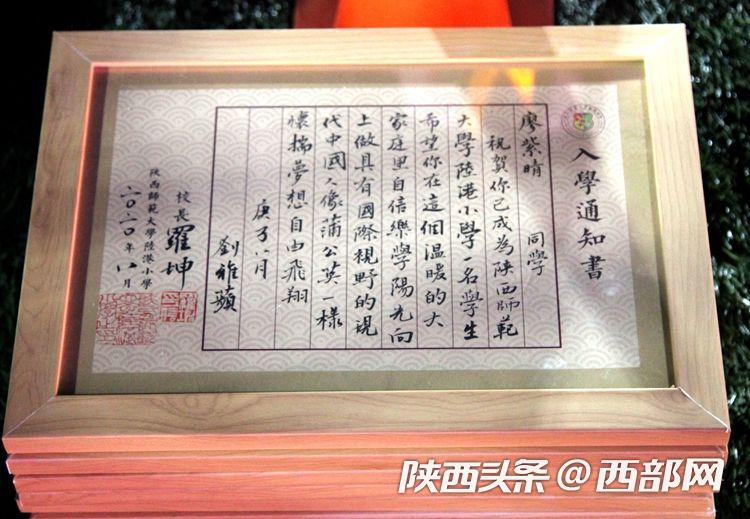 入學通知書
廖紫晴 同學
祝賀你已成為陝西師範
大學陸港小學一名學生
希望你在這個温暖的大
家庭里自信樂學陽光向
上做具有國際視野的現
代中國人像蒲公英一樣
懷揣夢想自由飛翔
庚子八月
劉維蘋
校長 羅坤
陝西師範大學陸港小學
二〇二〇年八月
陕西头条@西部网